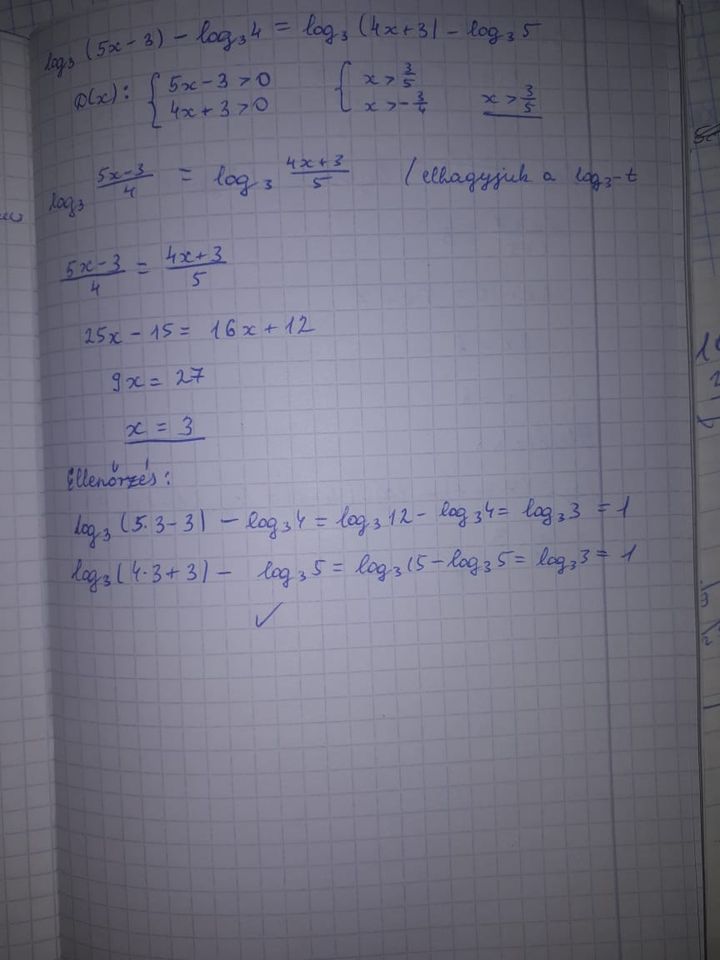 log₃(5x-3) - log₃4 = log₃(4x+3) - log₃5
D(x): { 5x-3>0 { x>3/5
4x+3>0 x>-3/4 x>3/5
log₃ (5x-3)/4 = log₃ (4x+3)/5 / elhagyjuk a log₃-t
(5x-3)/4 = (4x+3)/5
25x-15 = 16x+12
9x = 27
x = 3
Ellenőrzés:
log₃(5·3-3) - log₃4 = log₃12 - log₃4 = log₃3 = 1
log₃(4·3+3) - log₃5 = log₃15 - log₃5 = log₃3 = 1
✓